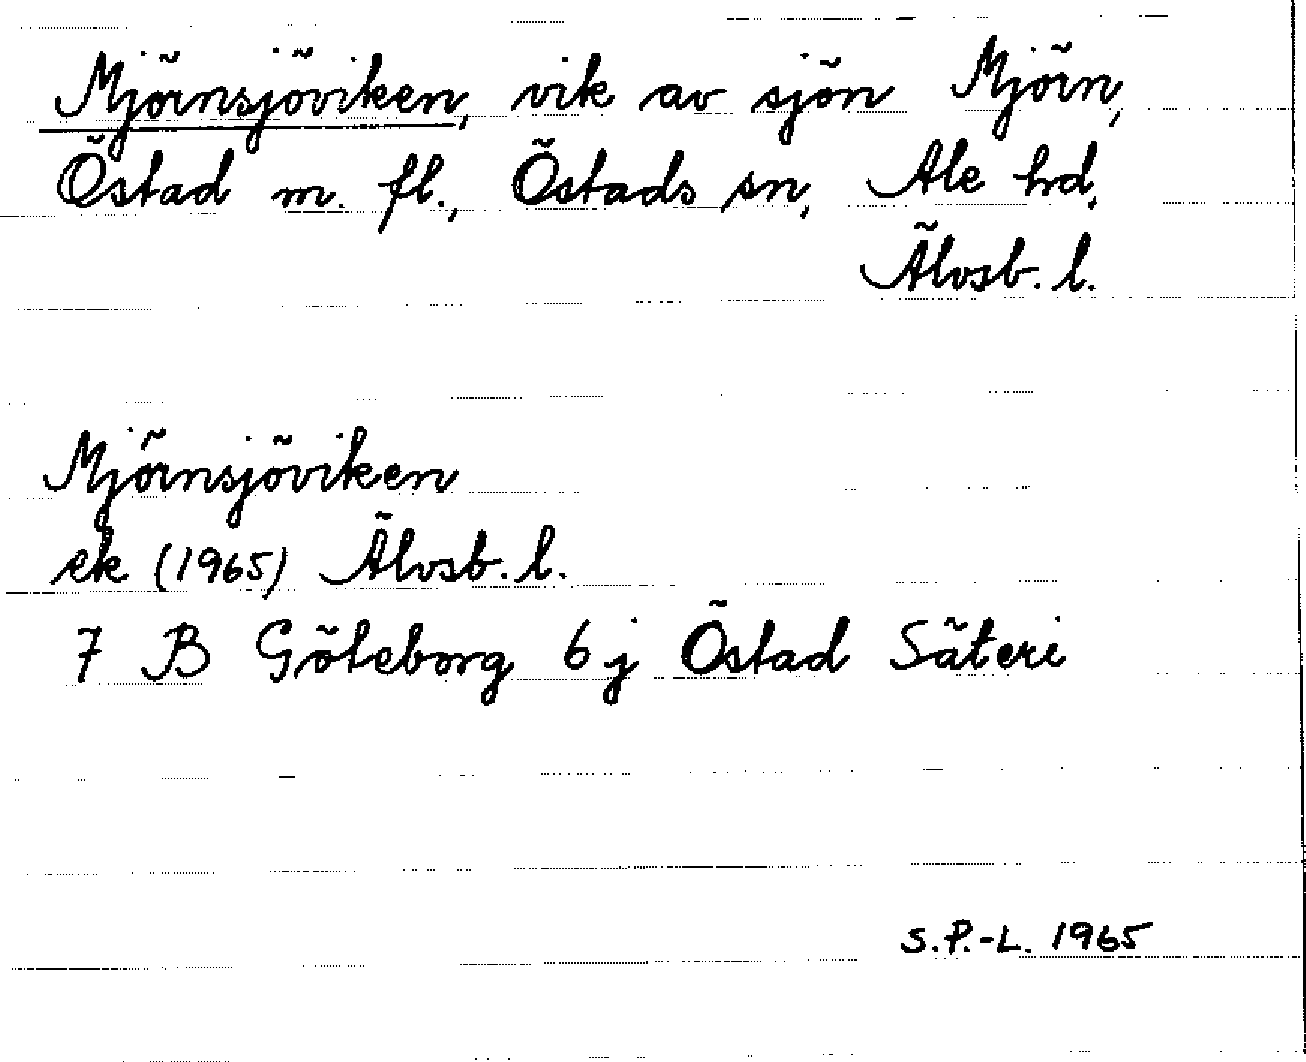 Mjörnsjöviken, vik av sjön Mjörn,
Östad m. fl., Östads sn, Ale hd,
Älvsb. l.
Mjörnsjöviken
ek (1965) Älvsb. l.
7 B Göteborg 6 j Östad Säteri
S.P.-L. 1965